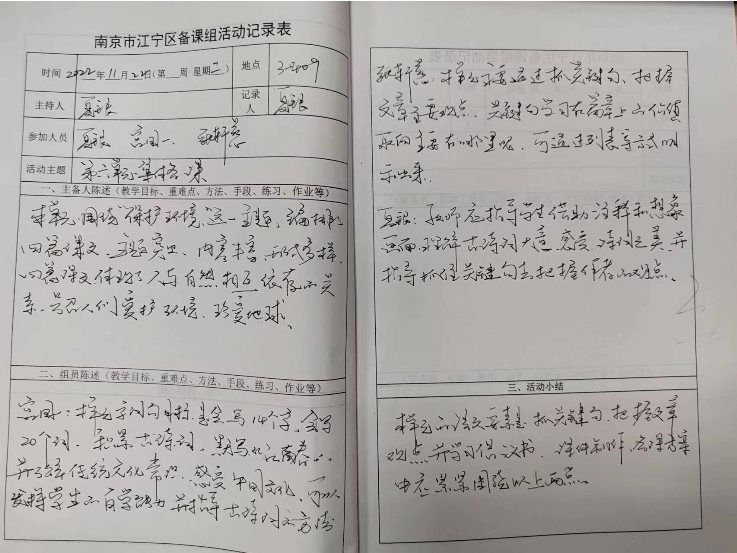 南京市江宁区备课组活动记录表
时间 2022年11月22日(第 周 星期二) 地点 3-409
主持人 夏银 记录人 夏银
参加人员 夏银 宫国一
活动主题 第六单元集体备课
一、主备人陈述(教学目标、重难点、方法、手段、练习、作业等)
本单元围绕“保护环境”这一主题,编排了
四篇课文,主题突出,内容丰富,形式多样,
四篇课文体现了人与自然相互依存的关
系,号召人们爱护环境、珍爱地球。
二、组员陈述(教学目标、重难点、方法、手段、练习、作业等)
宫国一:本单元字词句目标是会写14个字,会写
20个词,积累古诗词,默写《江南春》,
并了解传统文化常识,感受中国文化,可以
发挥学生的自学能力并指导古诗词的方法
本单元要通过抓关键句,把握
文章主要观点,关键句学习在篇章上的价值
取向主要在哪里呢,可通过列表等方式明
示出来。
夏银:教师应指导学生借助注释和想象
画面理解古诗词大意,感受诗词之美,并
指导抓住关键句去把握作者的观点。
三、活动小结
本单元的语文要素是抓关键句,把握文章
观点并学习倡议书,课件制作、备课方案
中应紧紧围绕以上两点。